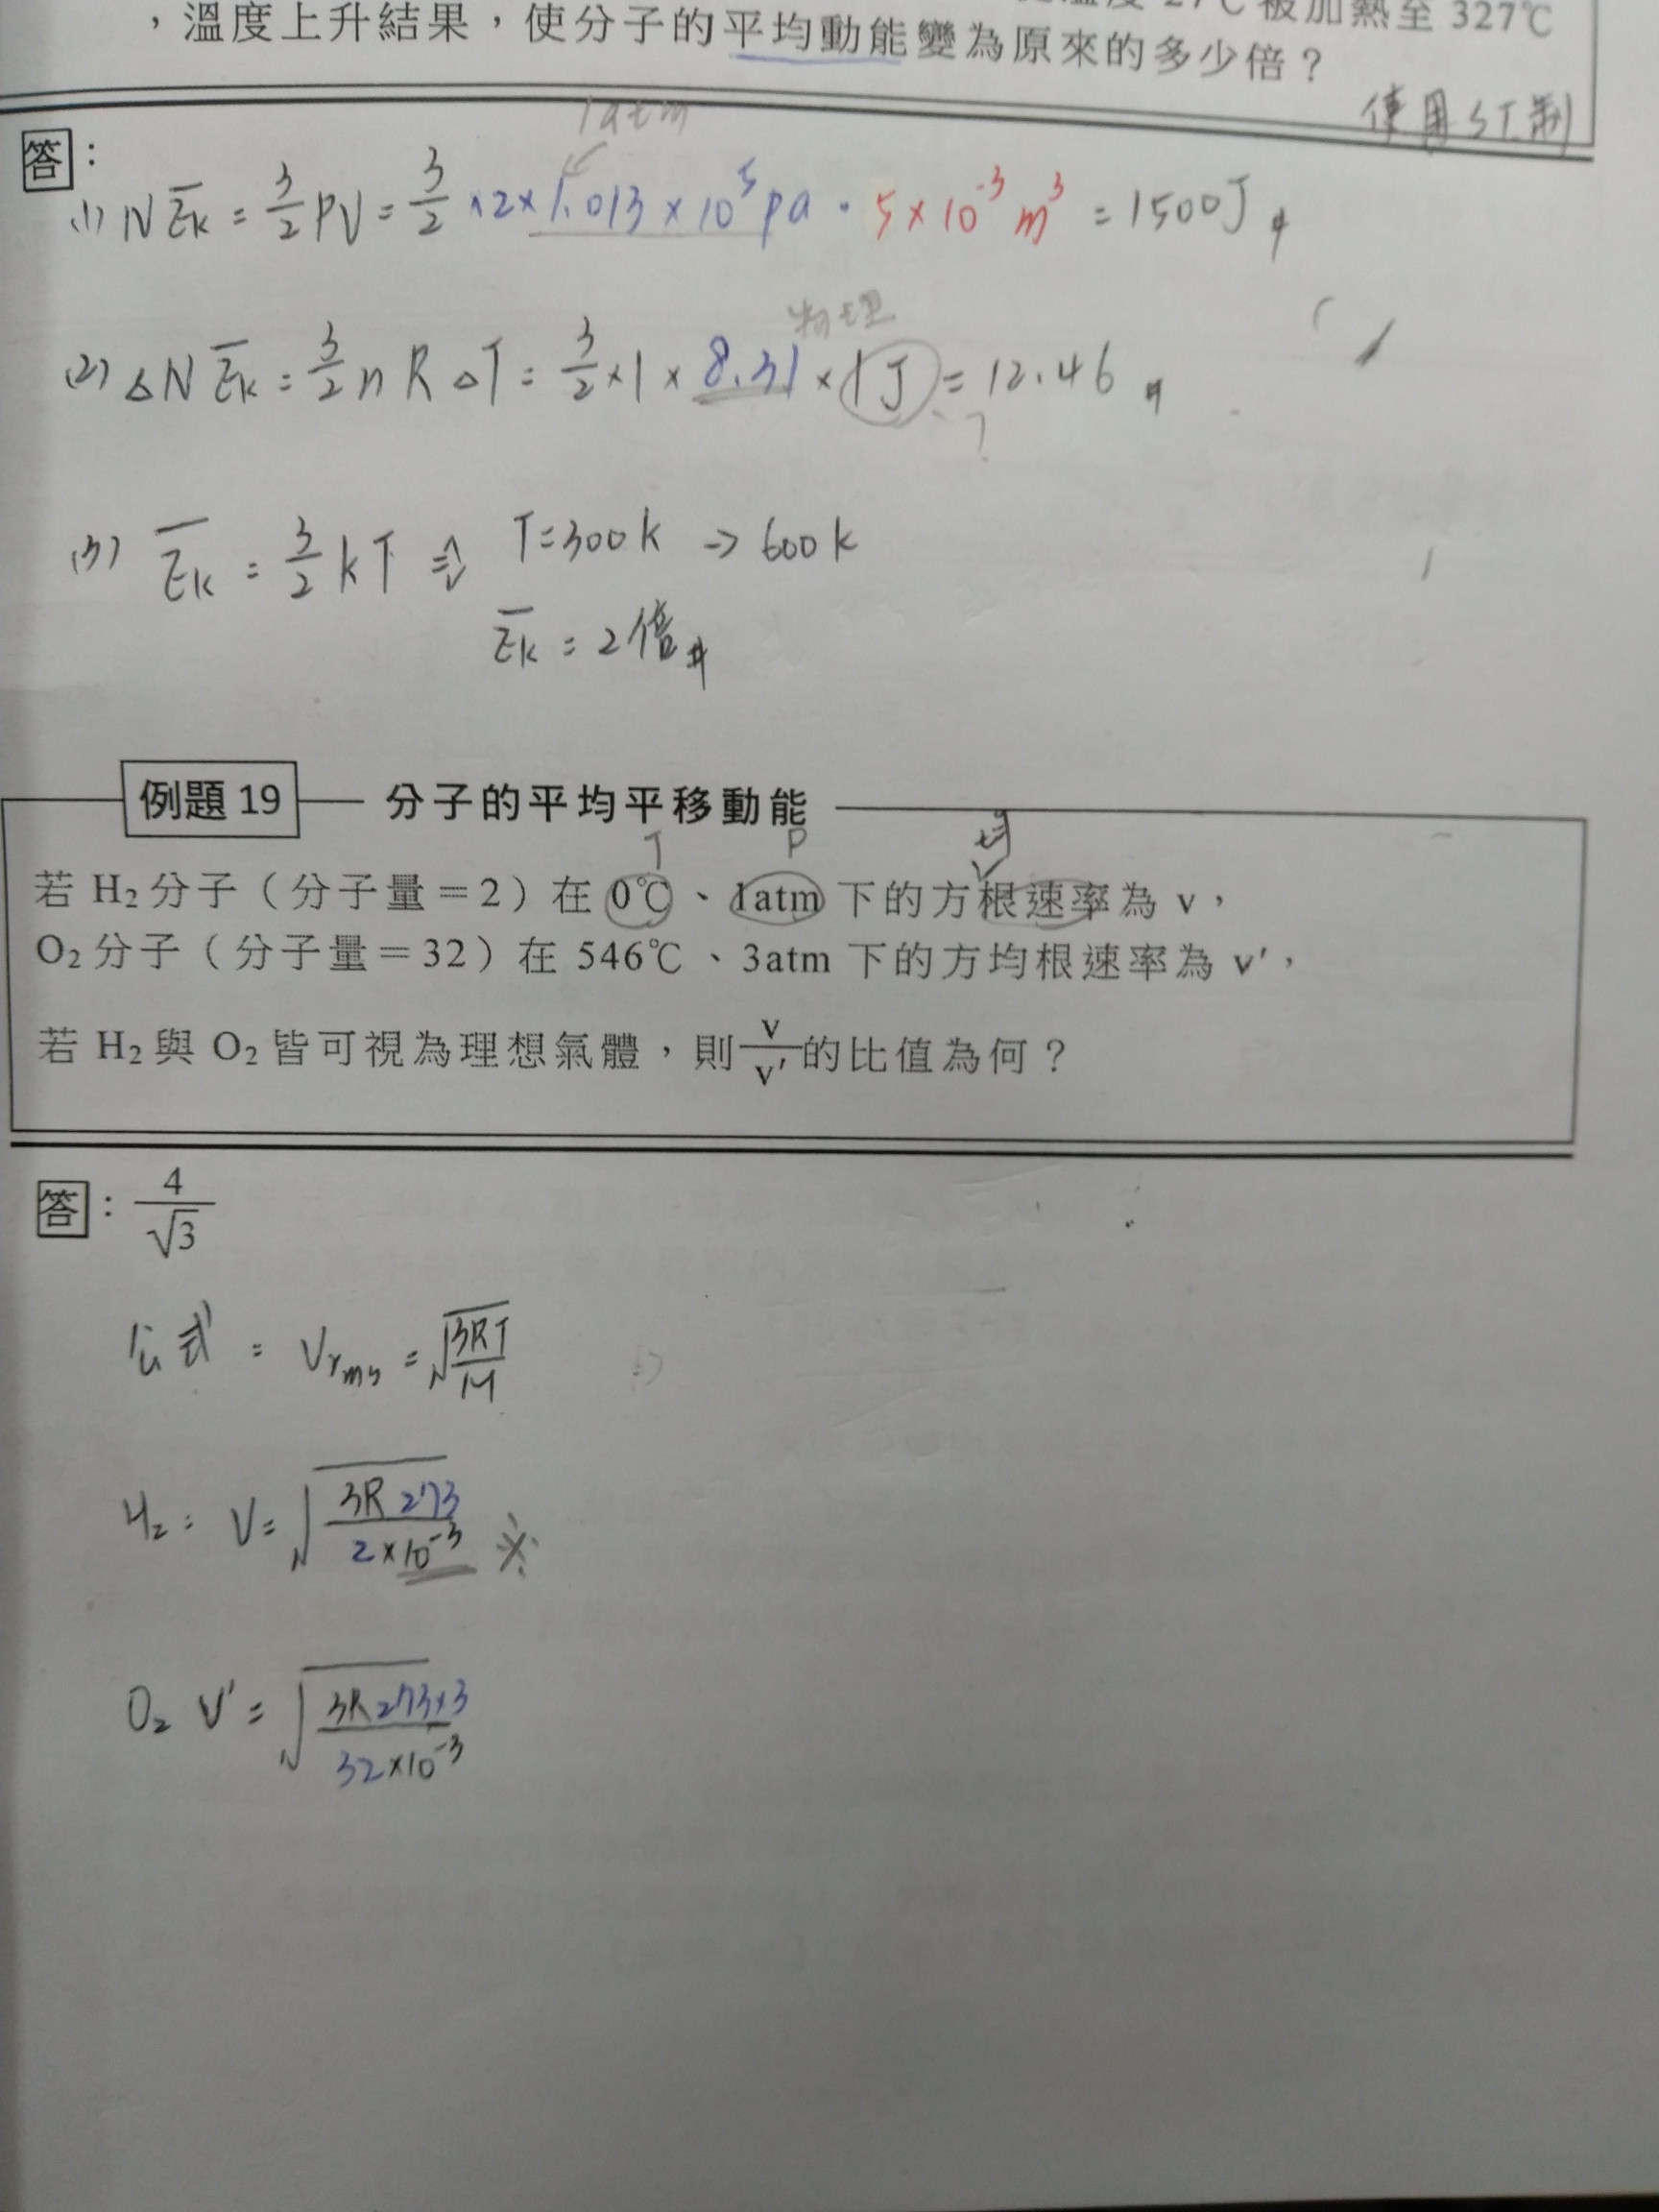 溫度27℃被加熱至327℃
，溫度上升結果，使分子的平均動能變為原來的多少倍？
使用SI制
答：
1atm
(1) NEk = 3/2 PV = 3/2 × 2 × 1.013 × 10⁵ pa · 5 × 10⁻³ m³ = 1500J #
物理
(2) △NEk = 3/2 n R △T = 3/2 × 1 × 8.31 × 1J = 12.46 #
?
(3) Ek = 3/2 kT ⇒ T=300k → 600k
Ek = 2倍#
例題 19 分子的平均平移動能
T P 均
若 H₂ 分子（分子量＝2）在 0℃、1atm 下的方根速率為 v，
O₂ 分子（分子量＝32）在 546℃、3atm 下的方均根速率為 v'，
若 H₂ 與 O₂ 皆可視為理想氣體，則 v/v' 的比值為何？
答：4/√3
公式 = Vrms = √(3RT/M)
H₂ = V = √(3R 273/2×10⁻³) ※
O₂ V' = √(3R 273×3/32×10⁻³)